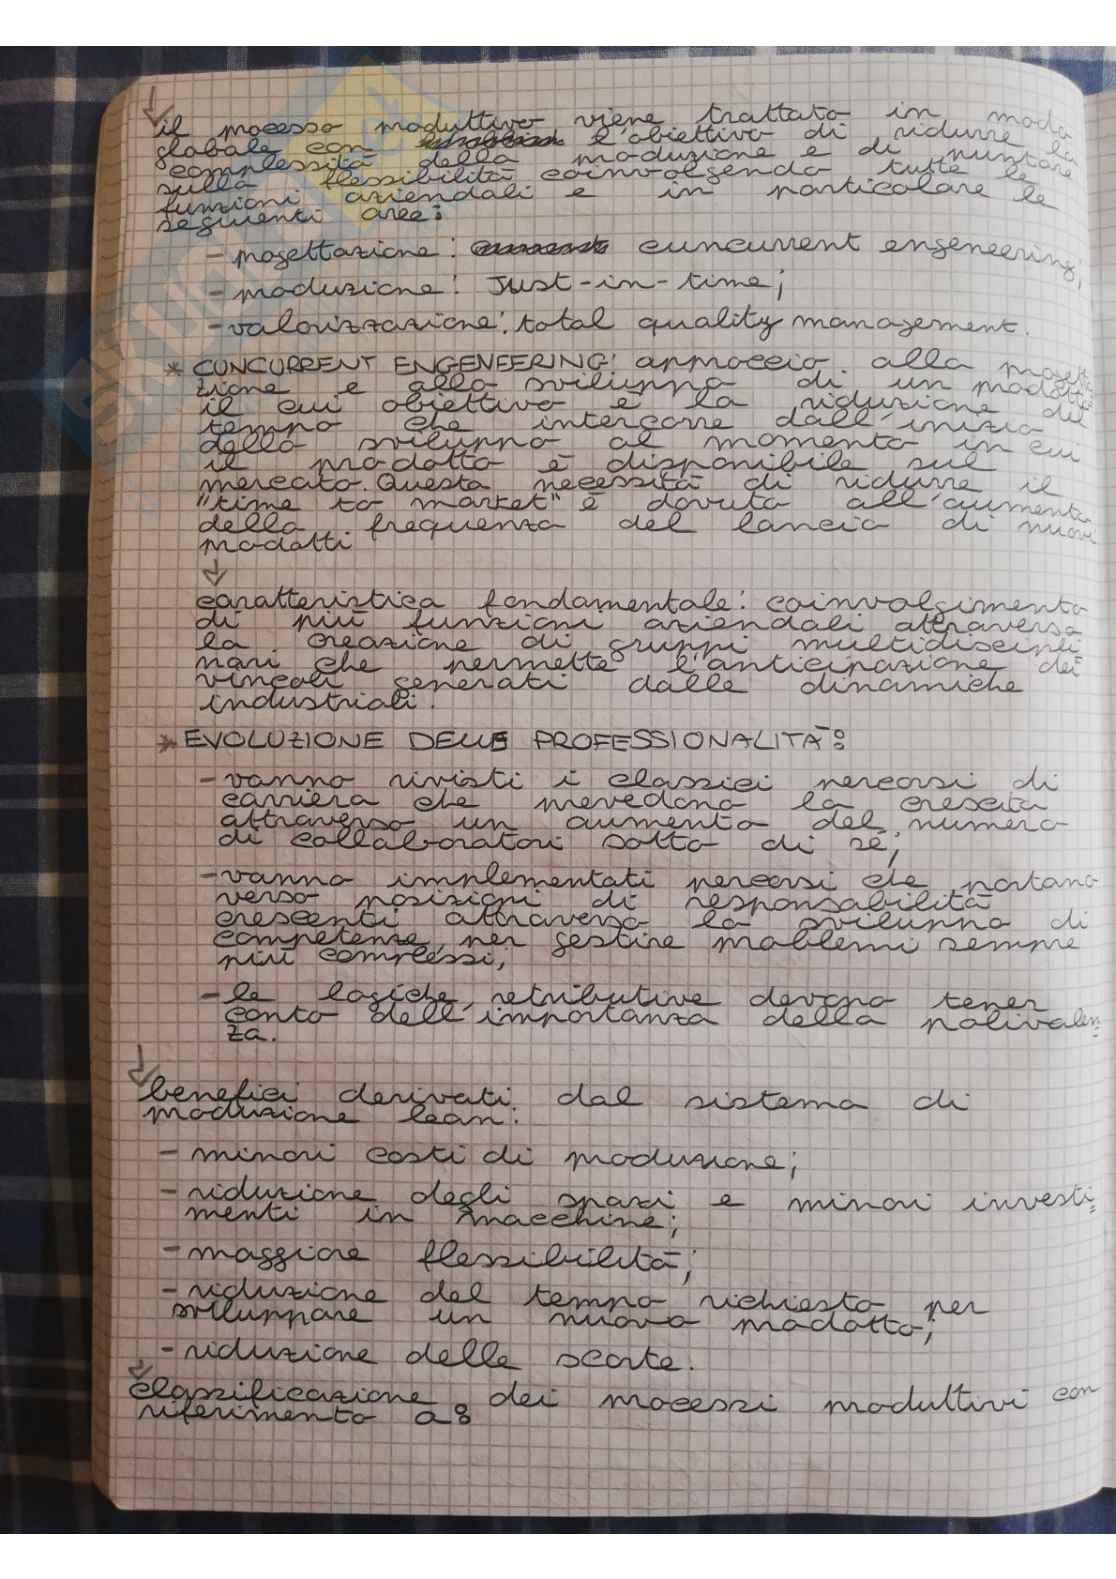 il processo produttivo viene trattato in modo
globale con l'obiettivo di ridurre la
complessità della produzione e di puntare
sulla flessibilità coinvolgendo tutte le
funzioni aziendali e in particolare le
seguenti aree:
- progettazione: cuncurrent engeneering;
- produzione: Just-in-time;
- valorizzazione: total quality management.
* CUNCURRENT ENGENEERING: approccio alla progetta
zione e allo sviluppo di un prodotto
il cui obiettivo è la riduzione del
tempo che intercorre dall'inizio
dello sviluppo al momento in cui
il prodotto è disponibile sul
mercato. Questa necessità di ridurre il
"time to market" è dovuta all'aumento
della frequenza del lancio di nuovi
prodotti
caratteristica fondamentale: coinvolgimento
di più funzioni aziendali attraverso
la creazione di gruppi multidiscipli
nari che permette l'anticipazione dei
vincoli generati dalle dinamiche
industriali.
* EVOLUZIONE DELLE PROFESSIONALITÀ:
- vanno rivisti i classici percorsi di
carriera che prevedono la crescita
attraverso un aumento del numero
di collaboratori sotto di sé;
- vanno implementati percorsi che portano
verso posizioni di responsabilità
crescenti attraverso lo sviluppo di
competenze per gestire problemi sempre
più complessi;
- le logiche retributive devono tener
conto dell'importanza della polivalen=
za.
benefici derivati dal sistema di
produzione lean:
- minori costi di produzione;
- riduzione degli spazi e minori investi=
menti in macchine;
- maggiore flessibilità;
- riduzione del tempo richiesto per
sviluppare un nuovo prodotto;
- riduzione delle scorte.
classificazione dei processi produttivi con
riferimento a: